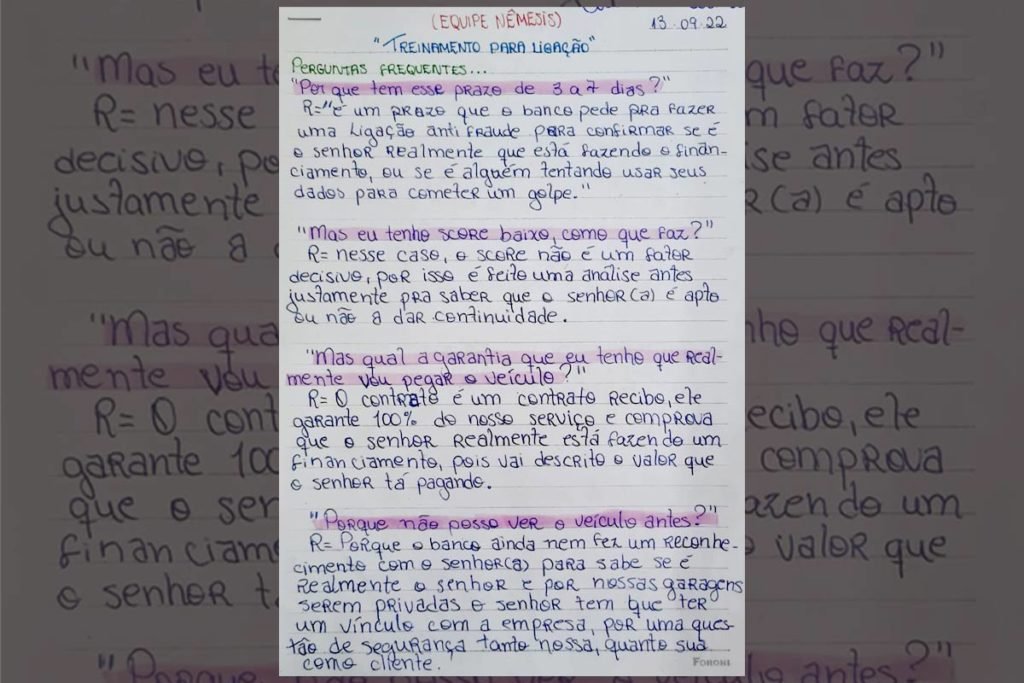 (EQUIPE NÊMESIS) 13.09.22
"TREINAMENTO PARA LIGAÇÃO"
PERGUNTAS FREQUENTES...
"Por que tem esse prazo de 3 a 7 dias?"
R="é um prazo que o banco pede pra fazer
uma ligação anti fraude para confirmar se é
o senhor realmente que está fazendo o finan-
ciamento, ou se é alguém tentando usar seus
dados para cometer um golpe."
"Mas eu tenho score baixo, como que faz?"
R= nesse caso, o score não é um fator
decisivo, por isso é feito uma análise antes
justamente pra saber que o senhor(a) é apto
ou não a dar continuidade.
"Mas qual a garantia que eu tenho que real-
mente vou pegar o veículo?"
R= O contrato é um contrato recibo, ele
garante 100% do nosso serviço e comprova
que o senhor realmente está fazendo um
financiamento, pois vai descrito o valor que
o senhor tá pagando.
"Porque não posso ver o veículo antes?"
R= Porque o banco ainda nem fez um reconhe-
cimento com o senhor(a) para sabe se é
realmente o senhor e por nossas garagens
serem privadas o senhor tem que ter
um vínculo com a empresa, por uma ques-
tão de segurança tanto nossa, quanto sua
como cliente.
FORONI